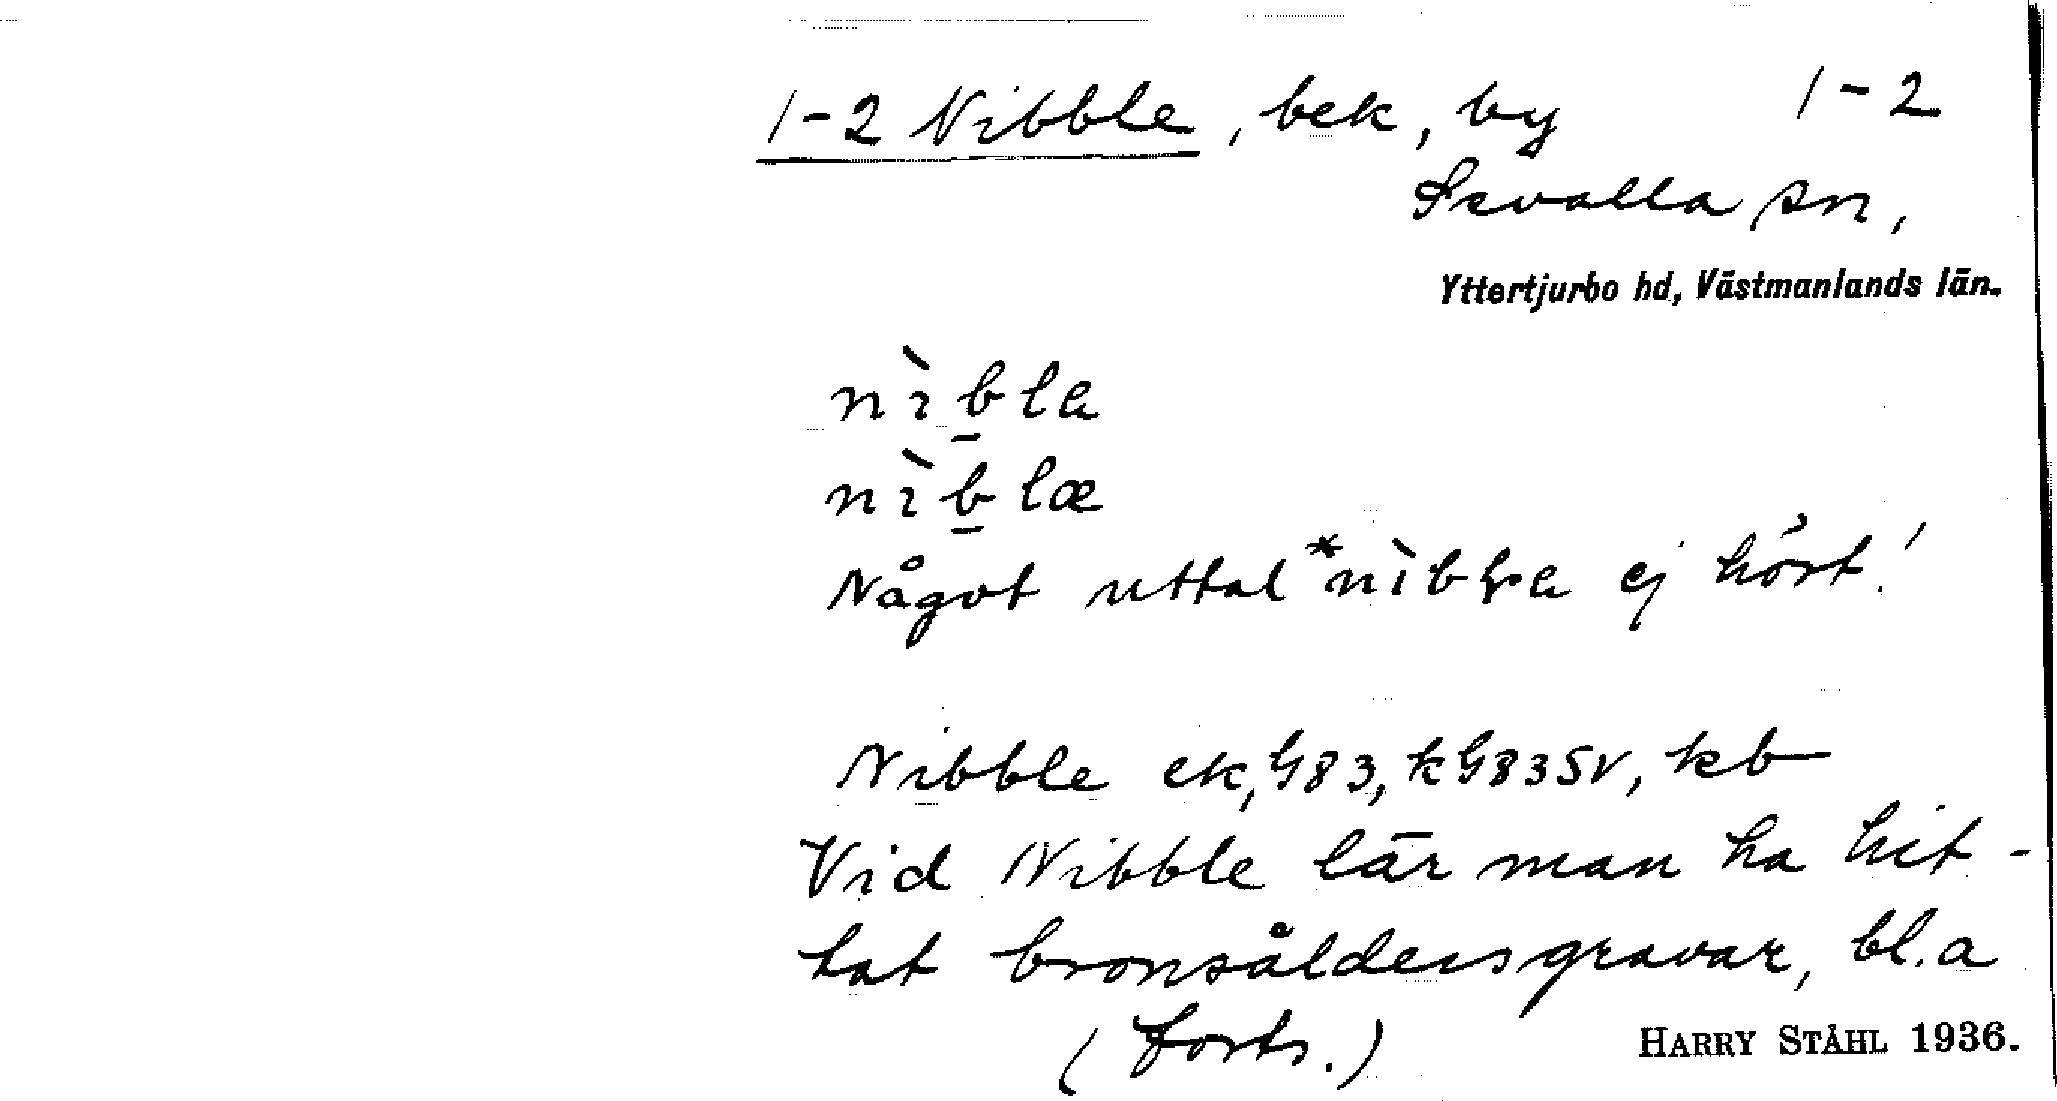 1-2 Nibble, bek, by 1-2
Sevalla sn,
Yttertjurbo hd, Västmanlands län.
nìb̲la
nìb̲læ
Något uttal *nìbla ej hört!
Nibble ek, G83, kG83SV, kb
Vid Nibble lär man ha hit-
tat bronsåldersgravar, bl.a
(forts.)
HARRY STÅHL 1936.